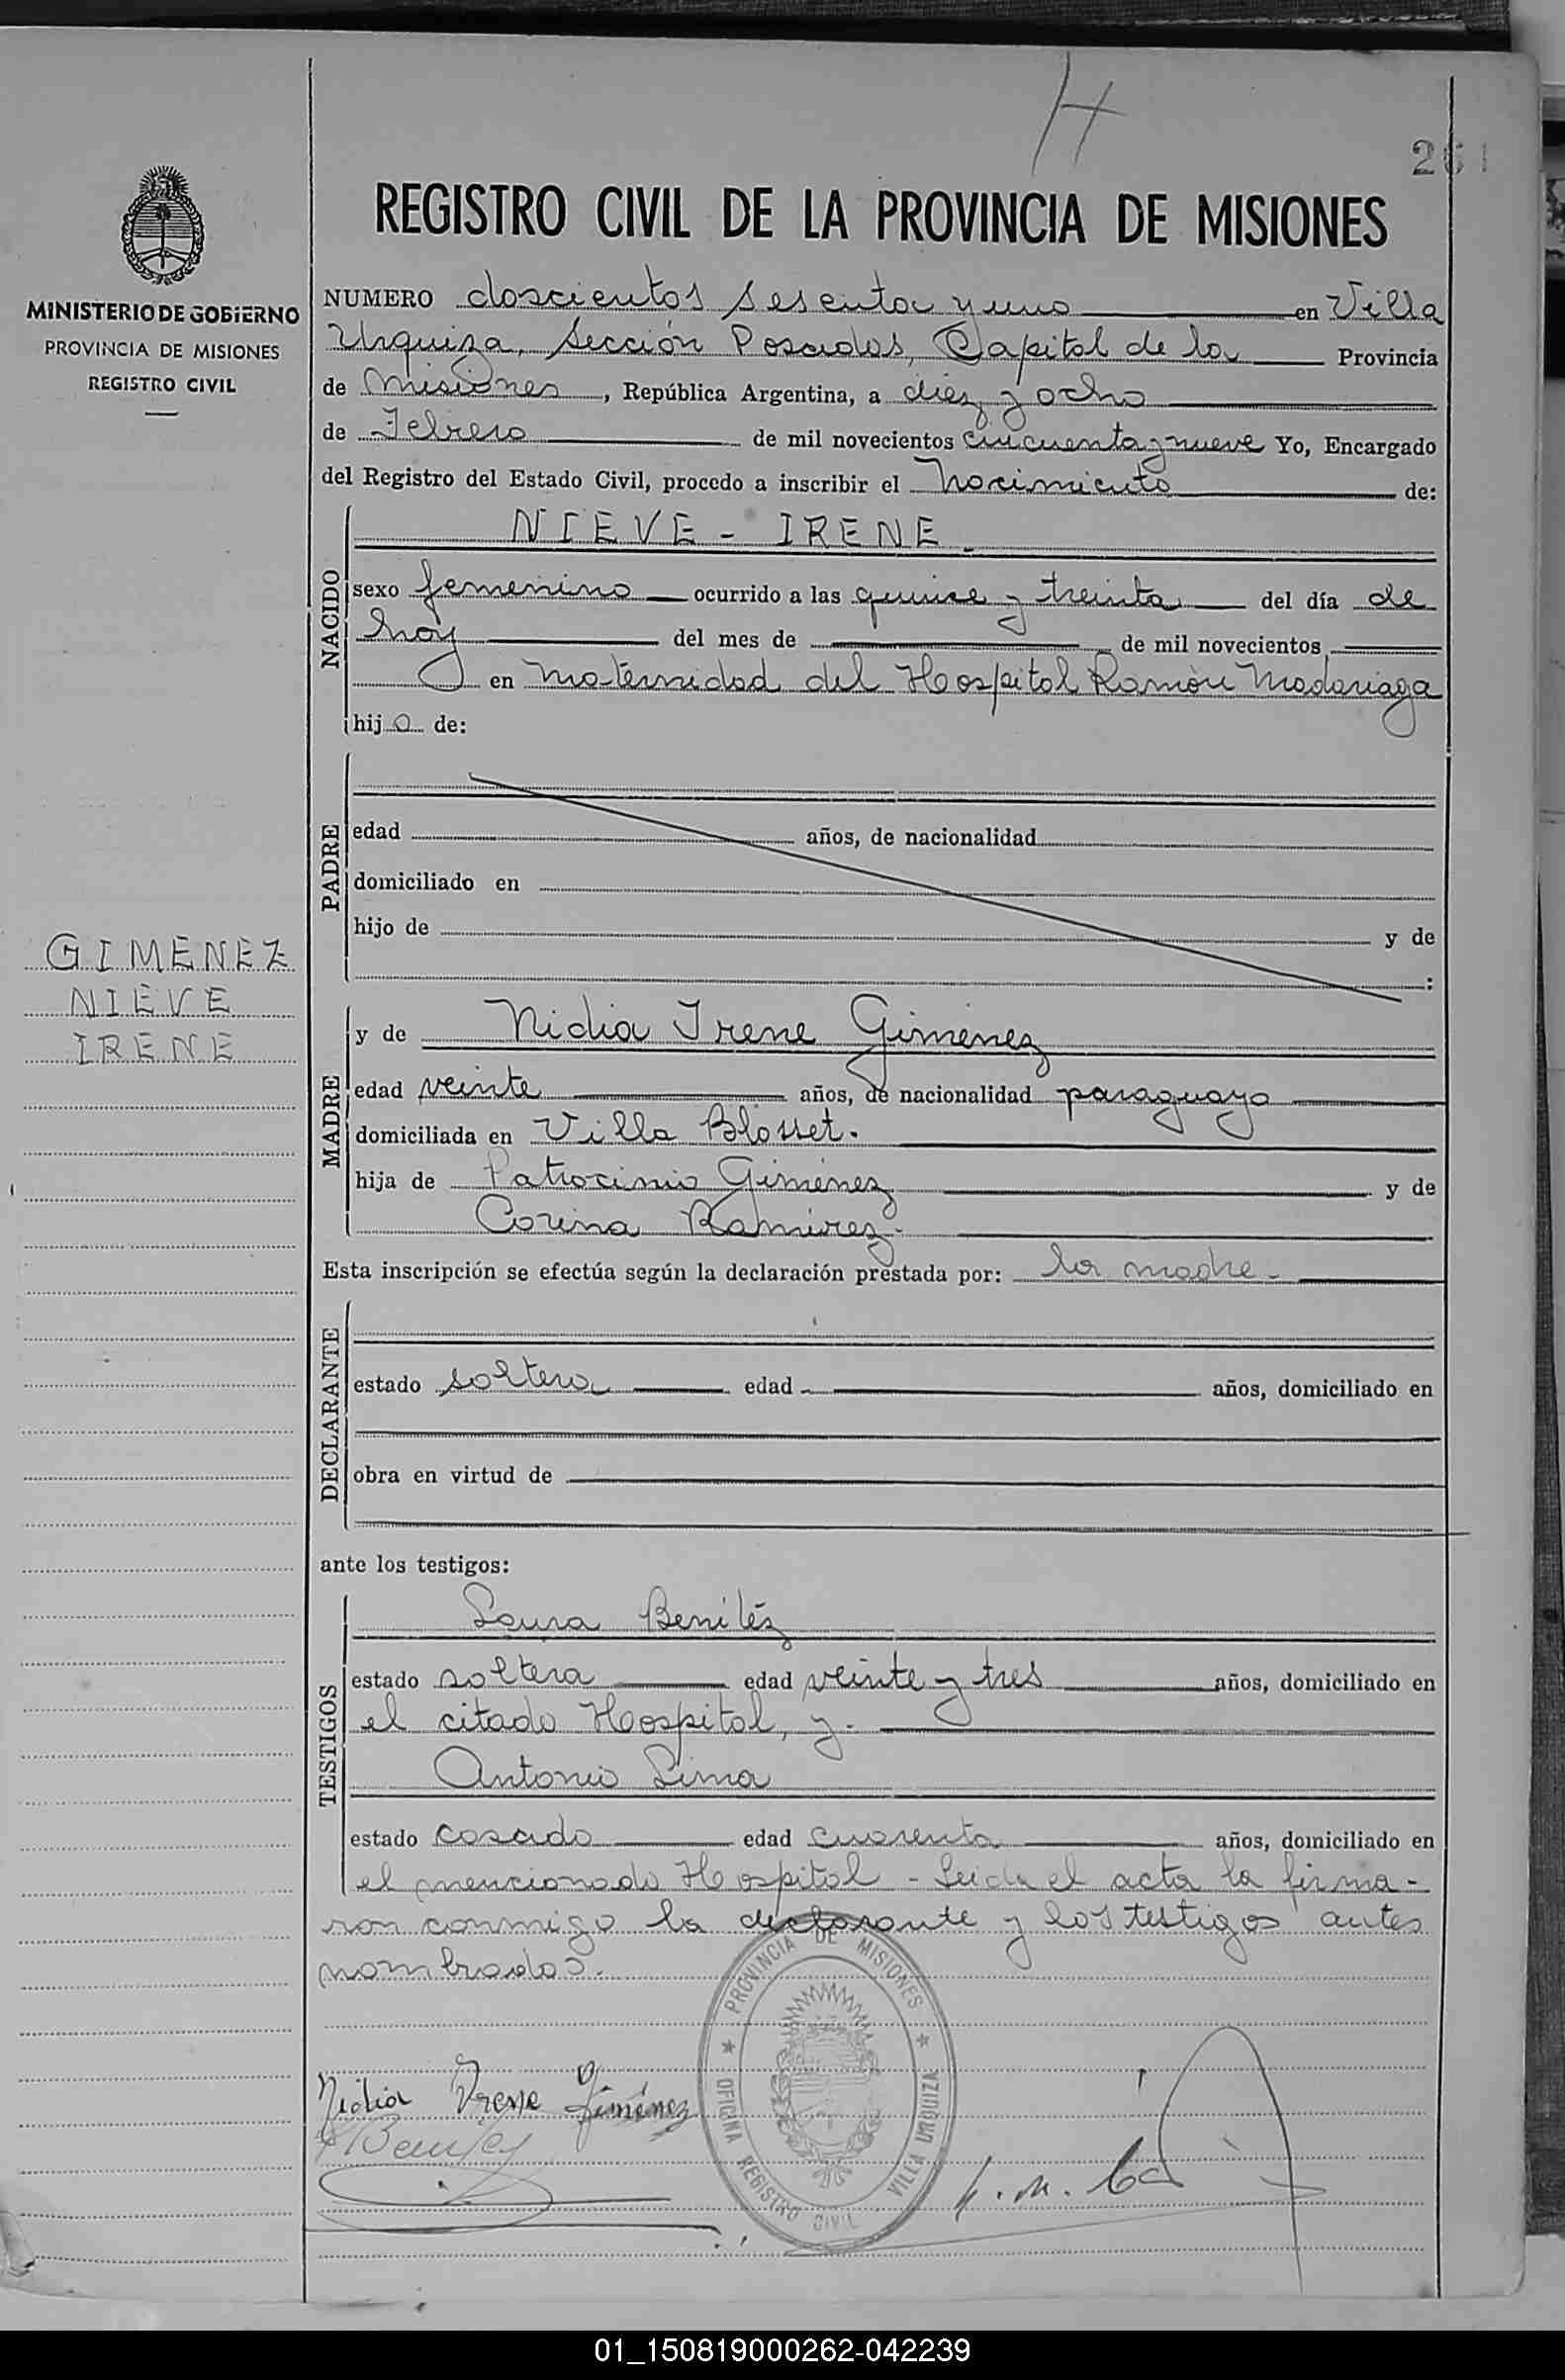 H
261
REGISTRO CIVIL DE LA PROVINCIA DE MISIONES
MINISTERIO DE GOBIERNO
PROVINCIA DE MISIONES
REGISTRO CIVIL
NUMERO doscientos sesenta y uno en Villa
Urquiza, Sección Posadas, Capital de la Provincia
de Misiones, República Argentina, a diez y ocho
de Febrero de mil novecientos cincuenta y nueve Yo, Encargado
del Registro del Estado Civil, procedo a inscribir el nacimiento de:
NIEVE - IRENE
NACIDO
sexo femenino ocurrido a las quince y treinta del día de
hoy del mes de de mil novecientos
en maternidad del Hospital Ramòn Madariaga
hij a de:
PADRE
edad años, de nacionalidad
domiciliado en
hijo de y de
:
GIMENEZ
NIEVE
IRENE
MADRE
y de Nidia Irene Gimenez
edad veinte años, de nacionalidad paraguaya
domiciliada en Villa Blosset.
hija de Patrocinio Gimenez y de
Corina Ramirez.
Esta inscripción se efectúa según la declaración prestada por: la madre.
DECLARANTE
estado soltera edad años, domiciliado en
obra en virtud de
ante los testigos:
TESTIGOS
Laura Benitéz
estado soltera edad veinte y tres años, domiciliado en
el citado Hospital, y.
Antonio Lima
estado casado edad cuarenta años, domiciliado en
el mencionado Hospital - Leida el acta la firma-
ron conmigo la declarante y los testigos antes
nombrados.
PROVINCIA DE MISIONES
OFICINA REGISTRO CIVIL VILLA URQUIZA
Nidia Irene Giménez
01_150819000262-042239